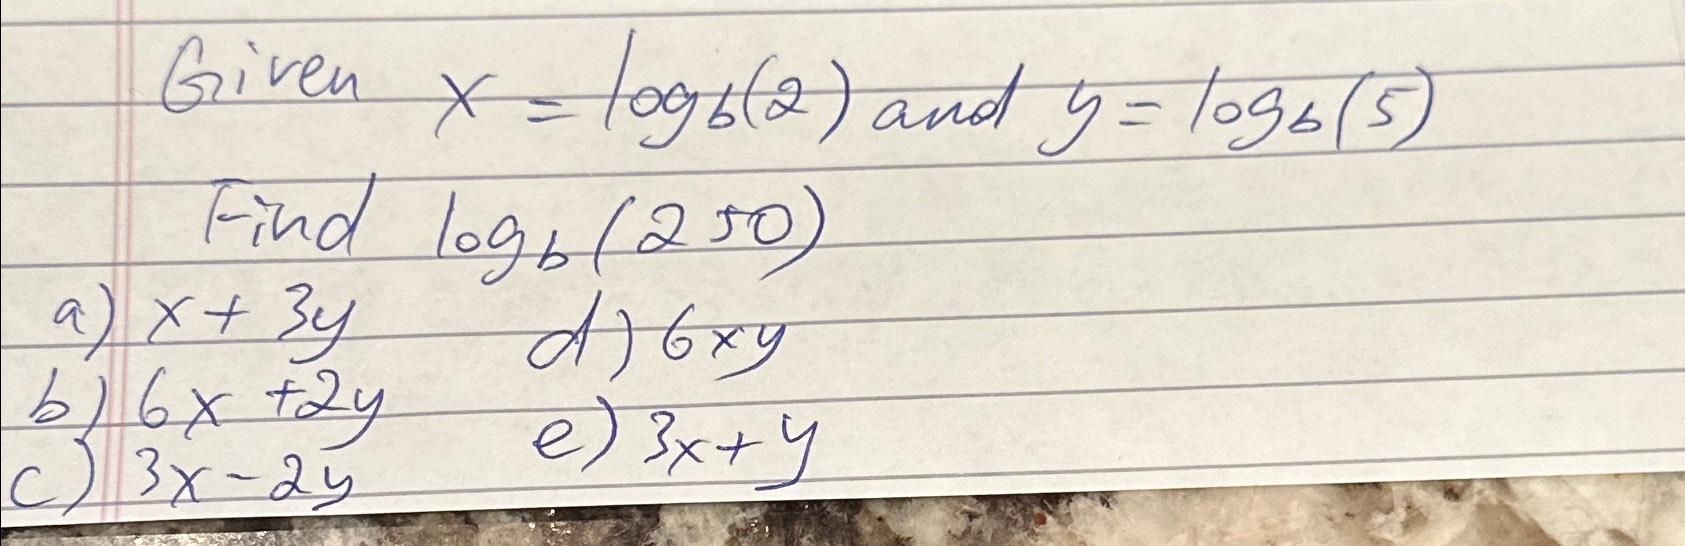 Given x = log_b(2) and y = log_b(5)
Find log_b(250)
a) x + 3y
b) 6x + 2y
c) 3x - 2y
d) 6xy
e) 3x + y